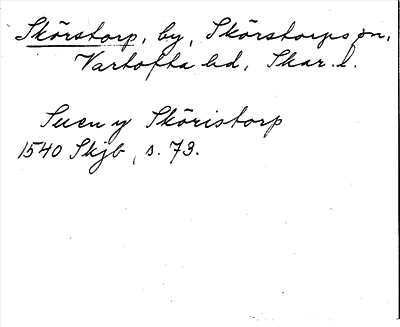 Skörstorp, by, Skörstorps sn,
Vartofta hd, Skar. l.
Suen y Sköristorp
1540 Skjb, s. 73.